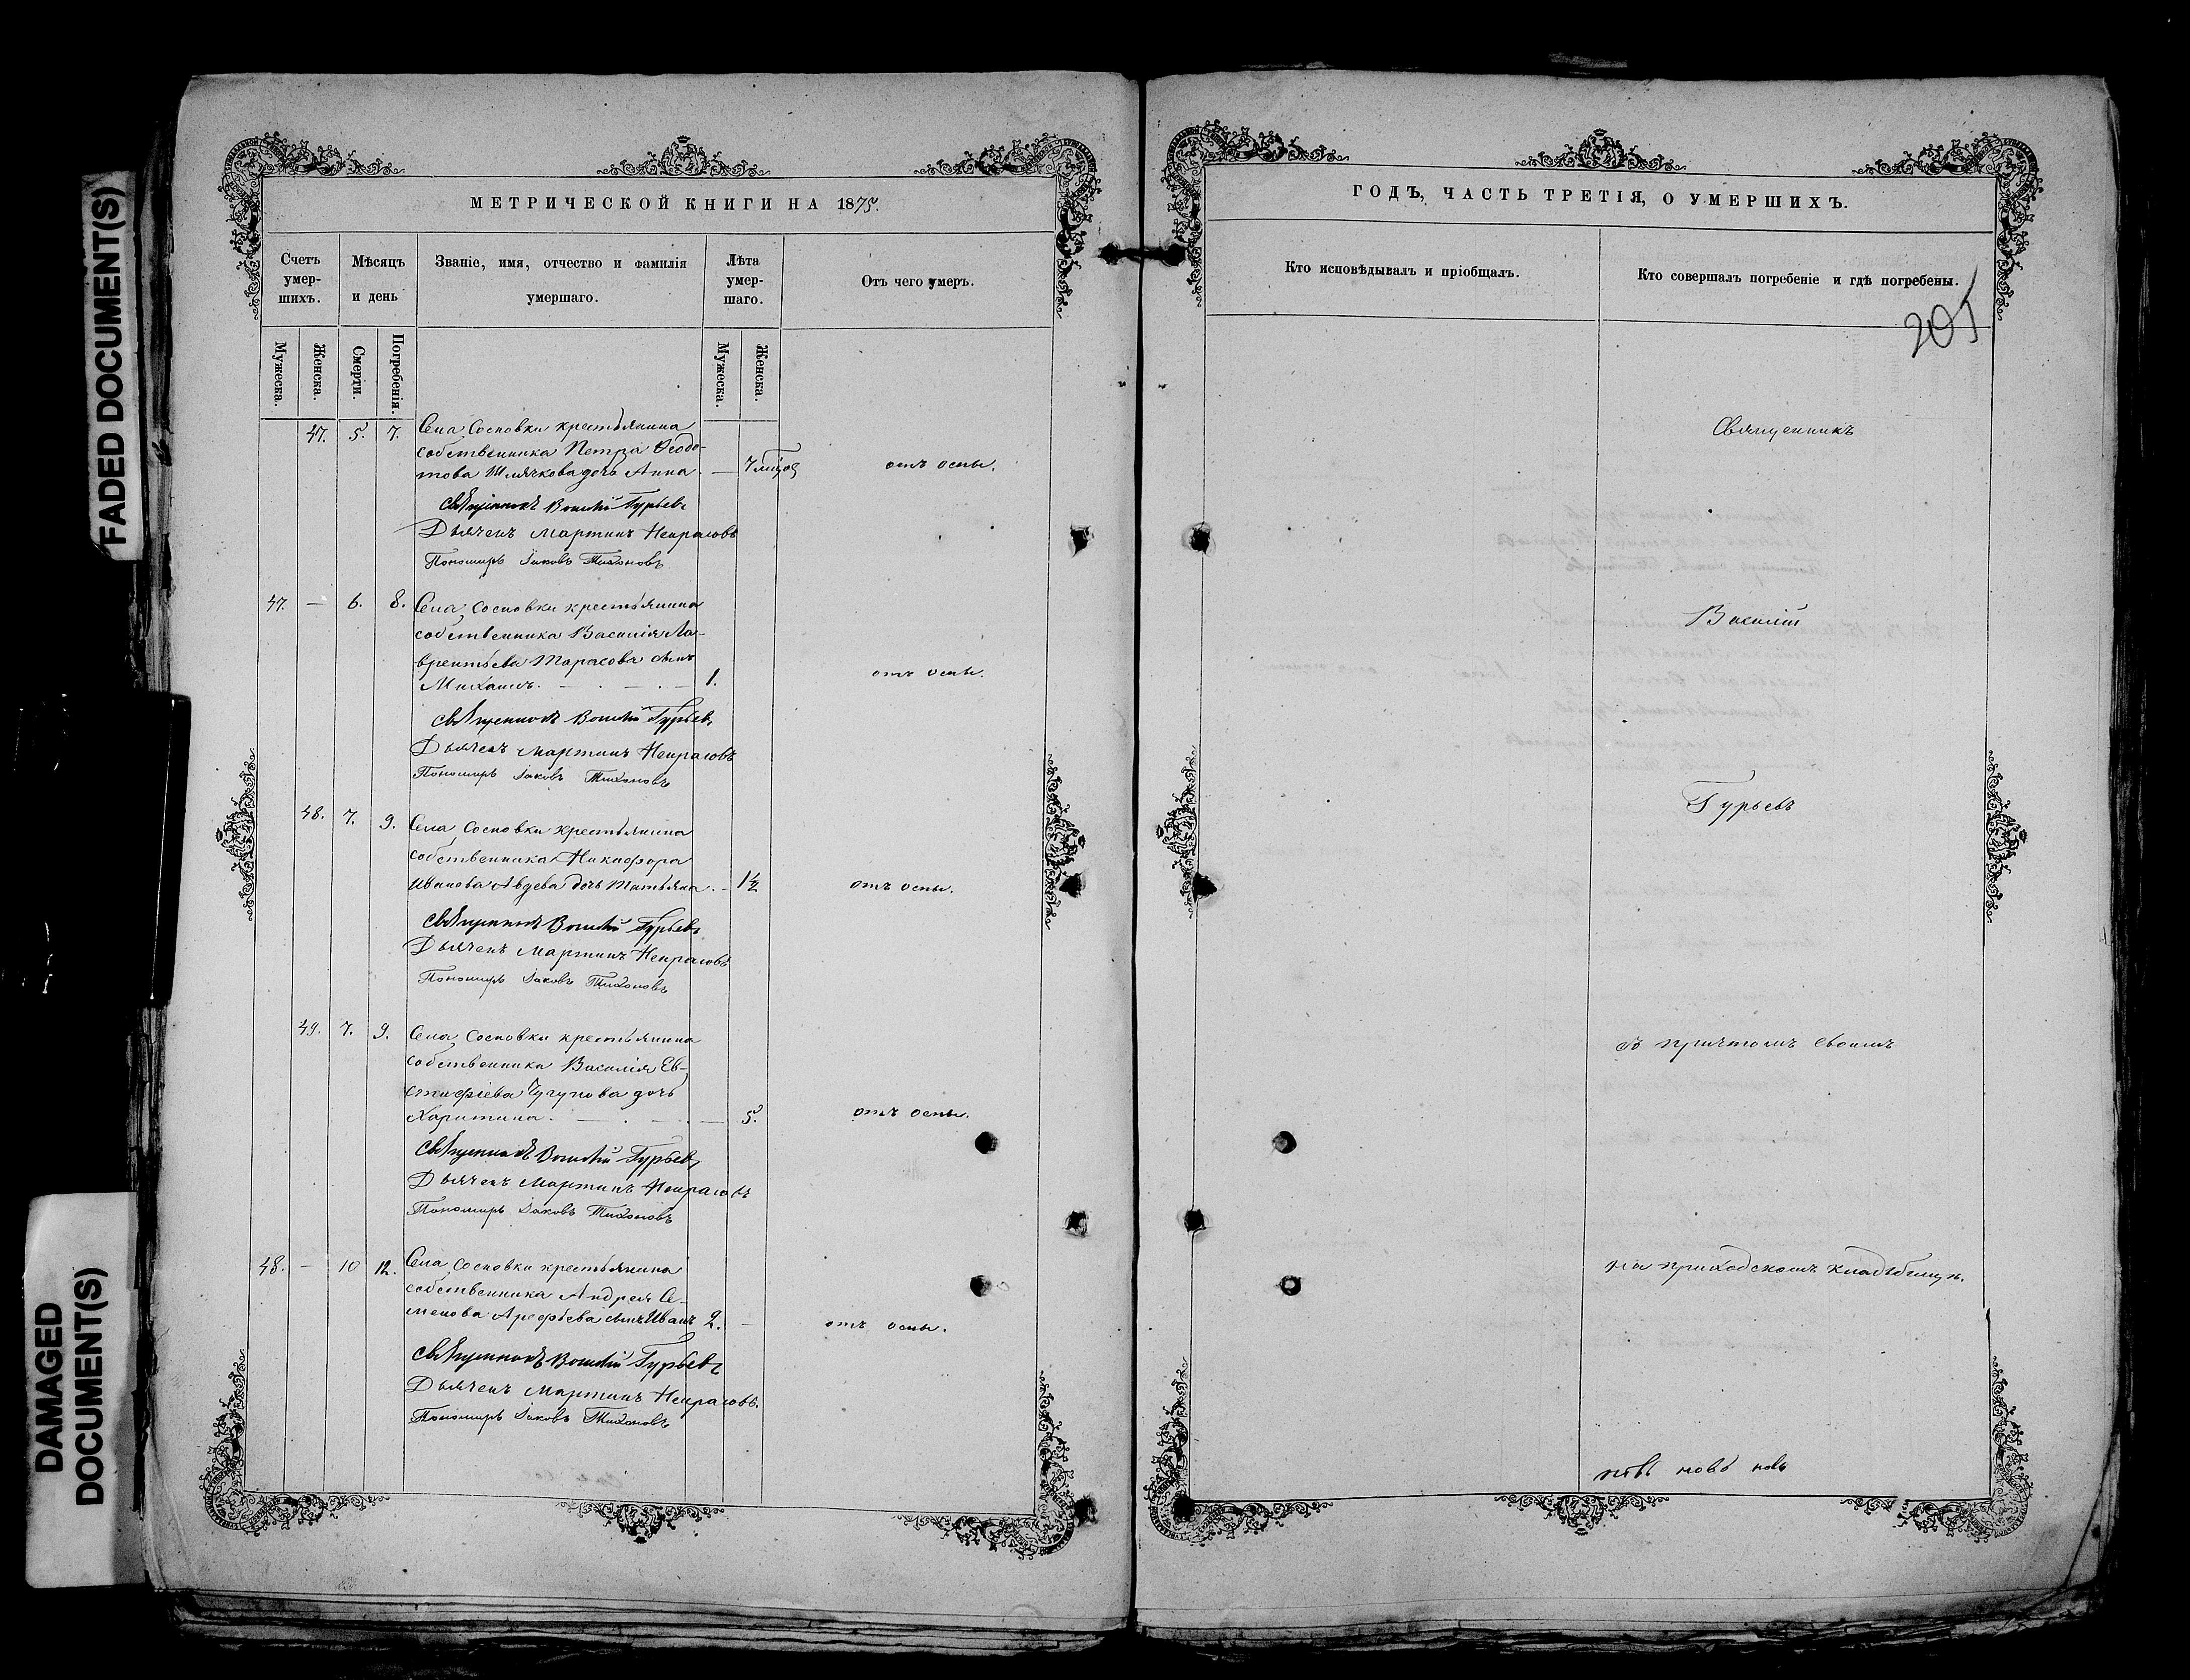 FADED DOCUMENT(S)
DAMAGED
DOCUMENT(S)
МЕТРИЧЕСКОЙ КНИГИ НА 1875.
Счетъ
умер-
шихъ.
Мѣсяцъ
и день
Званіе, имя, отчество и фамилія
умершаго.
Лѣта
умер-
шаго.
Отъ чего умеръ.
Мужеска.
Женска.
Смерти.
Погребенія.
Мужеска.
Женска.
47. 5. 7. Села Сосновки крестьянина
собственника Петра Ѳедо-
това дочь Анна. —
отъ оспы.
Священникъ Василій Гурьевъ
Дьячекъ Мартинъ Некрасовъ
Пономарь Іаковъ Тихоновъ
47. — 6. 8. Села Сосновки крестьянина
собственника Василія Ла-
врентьева Тарасова сынъ
Михаилъ. — . — . — 1. отъ оспы.
Священникъ Василій Гурьевъ
Дьячекъ Мартинъ Некрасовъ
Пономарь Іаковъ Тихоновъ
48. 7. 9. Села Сосновки крестьянина
собственника Никифора
Иванова Авдева дочь Татьяна. — 1½ отъ оспы.
Священникъ Василій Гурьевъ
Дьячекъ Мартинъ Некрасовъ
Пономарь Іаковъ Тихоновъ
49. 7. 9. Села Сосновки крестьянина
собственника Василія Ев-
стафіева Чугунова дочь
Харитина. — . — . — 5. отъ оспы.
Священникъ Василій Гурьевъ
Дьячекъ Мартинъ Некрасовъ
Пономарь Іаковъ Тихоновъ
48. — 10 12. Села Сосновки крестьянина
собственника Андрея Се-
менова Арефьева сынъ Иванъ 2. — отъ оспы.
Священникъ Василій Гурьевъ
Дьячекъ Мартинъ Некрасовъ.
Пономарь Іаковъ Тихоновъ
ГОДЪ, ЧАСТЬ ТРЕТІЯ, О УМЕРШИХЪ.
Кто исповѣдывалъ и пріобщалъ.
Кто совершалъ погребеніе и гдѣ погребены.
205
Священникъ
Василій
Гурьевъ
съ причтомъ своимъ
на приходскомъ кладбищѣ.